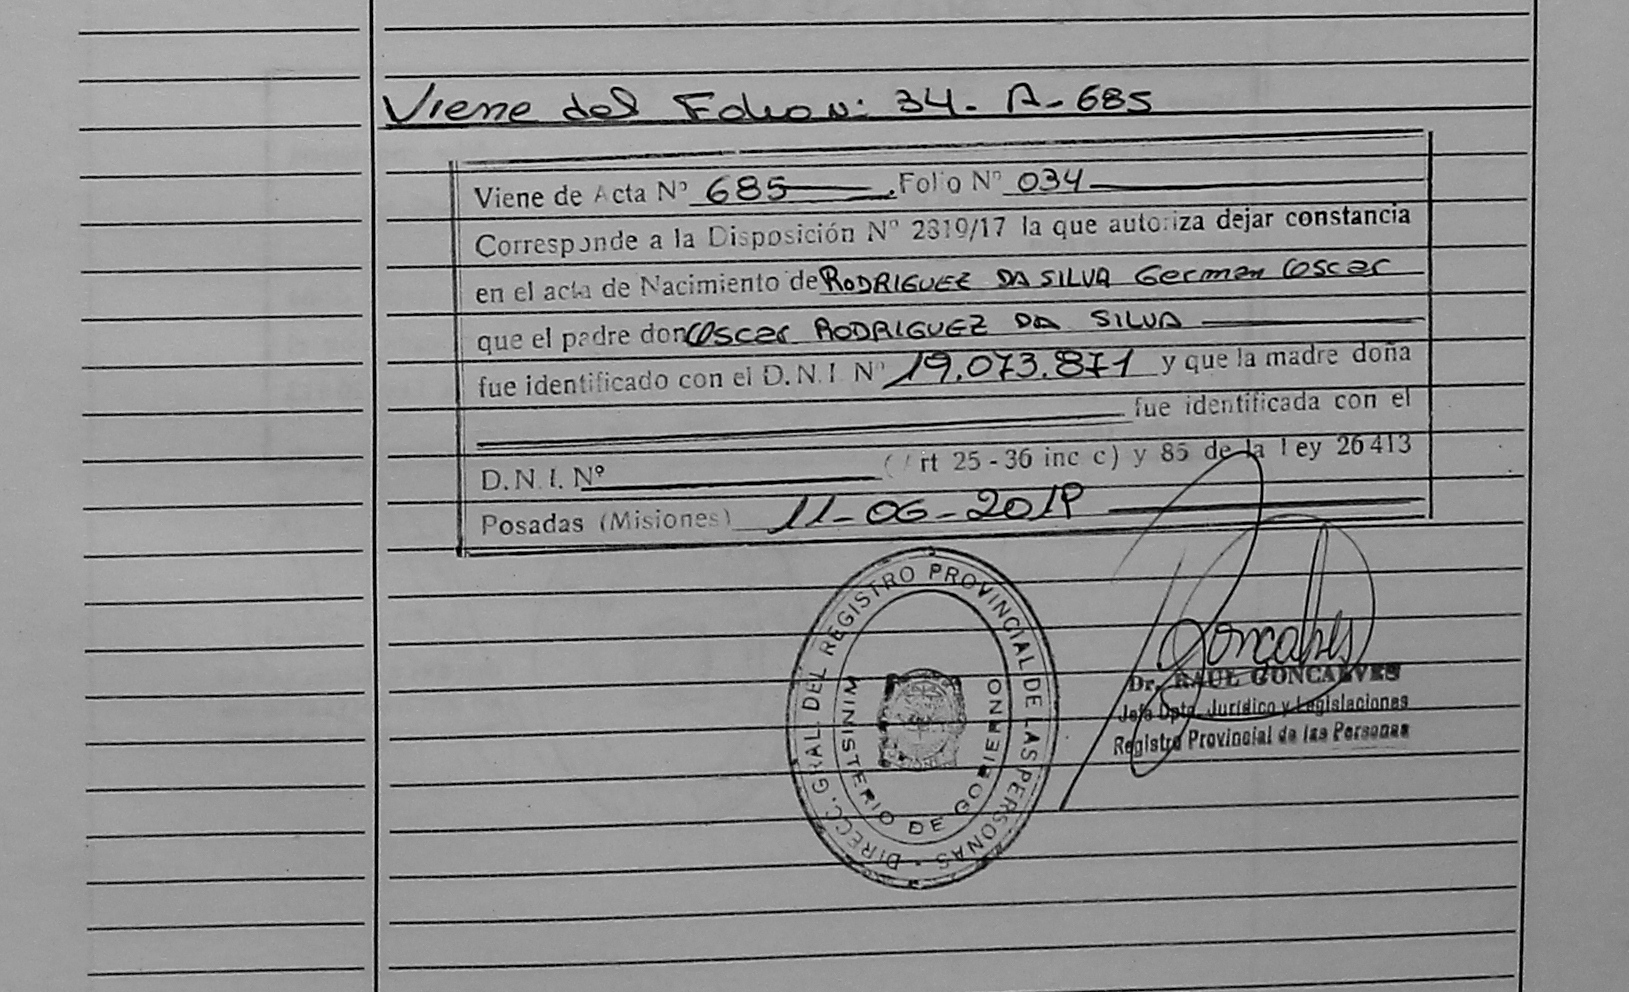 Viene del Folio N: 34- A- 685
Viene de Acta Nº 685 Folio Nº 034
Corresponde a la Disposición Nº 2819/17 la que autoriza dejar constancia
en el acta de Nacimiento de RODRIGUEZ DA SILVA German Oscar
que el padre don Oscar RODRIGUEZ DA SILVA
fue identificado con el D.N.I. Nº 19.073.871 y que la madre doña
fue identificada con el
D.N.I. Nº (Art 25-36 inc c) y 85 de la Ley 26413
Posadas (Misiones) 11-06-2019
DIRECC. GRAL DEL REGISTRO PROVINCIAL DE LAS PERSONAS -
MINISTERIO DE GOBIERNO
Goncalves
Dr. RAUL GONCALVES
Jefe Dpto. Jurídico y Legislaciones
Registro Provincial de las Personas